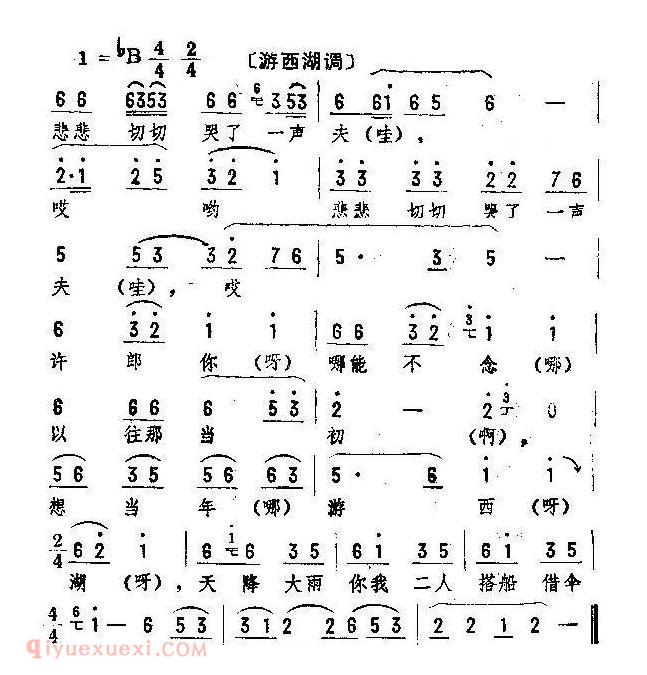 1=♭B 4/4 2/4 〔游西湖调〕
6 6 6353 6 6 6 3 53 | 6 6i 6 5 6 —
悲悲 切切 哭了 一声 夫（哇），
2·1 2 5 3 2 1 | 3 3 3 3 2 2 7 6
哎 哟 悲悲 切切 哭了 一声
5 5 3 3 2 7 6 | 5· 3 5 —
夫 （哇）， 哎
6 3 2 1 1 | 6 6 3 2 3 1 1
许 郎 你（呀） 哪能 不 念（哪）
6 6 6 6 5 3 | 2 — 2 3 0
以 往那 当 初 （啊），
5 6 3 5 5 6 6 3 | 5· 6 1 1
想 当 年（哪） 游 西（呀）
2/4 6 2 1 | 5 1 6 3 5 | 6 1 3 5 | 6 1 3 5
湖（呀），天降大雨你我二人搭船借伞
4/4 6 1 — 6 5 3 | 3 1 2 2 6 5 3 | 2 2 1 2 —
qiyuexuexi.com